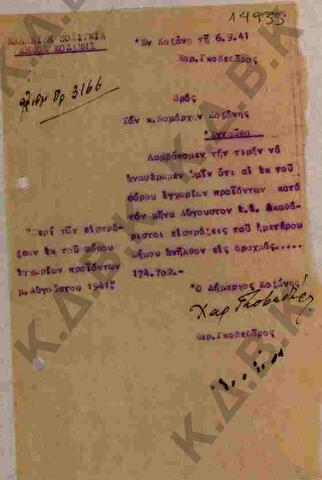 1493
ΕΛΛΗΝΙΚΗ ΠΟΛΙΤΕΙΑ
ΔΗΜΟΣ ΚΟΖΑΝΗΣ
Ἐν Κοζάνῃ τῇ 6.9.41
Χαρ.Γκοβεδρος
Ἀριθμ Πρ 3166
Πρός
Τόν κ.Νομάρχην Κοζάνης
Ἐνταῦθα
Λαμβάνομεν τήν τιμήν νά
ἀναφέρωμεν ὑμῖν ὅτι αἱ ἐκ τοῦ
φόρου ἐγχωρίων προϊόντων κατά
τόν μῆνα Αὔγουστον ἐ.ἔ. ἀκαθά-
ριστοι εἰσπράξεις τοῦ ἡμετέρου
δήμου ἀνῆλθον εἰς δραχμάς.....
174.702.-
"Περί τῶν εἰσπρά-
ξεων ἐκ τοῦ φόρου
ἐγχωρίων προϊόντων
μ.Αὐγούστου 1941"
Ὁ Δήμαρχος Κοζάνης
Χαρ Γκοβεδρος
Χαρ.Γκοβεδρος
Κ.Δ.Β.Κ
Κ.Δ.Β.Κ
Κ.Δ.Β.Κ